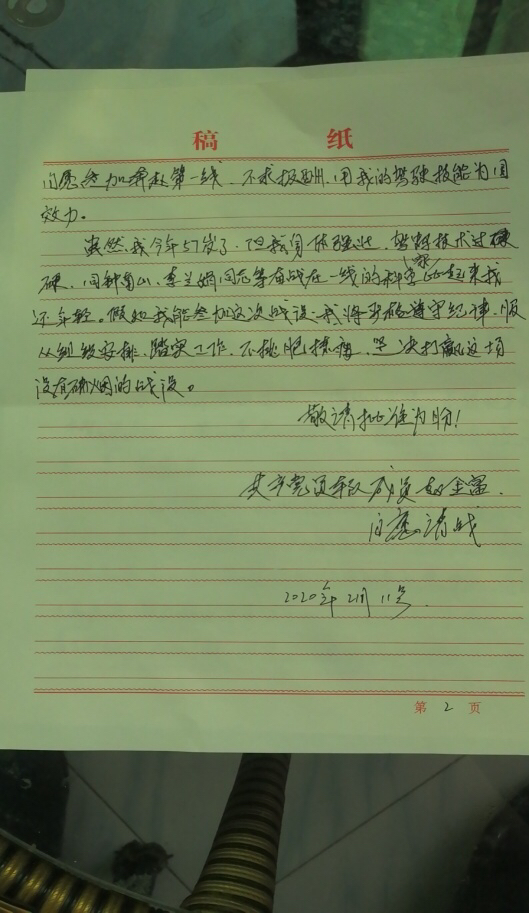 稿 纸
自愿参加奔赴第一线、不求报酬、用我的驾驶技能为国
效力。
虽然我今年57岁了、但我身体强壮、驾驶技术过硬
硬、同钟南山、李兰娟同志等奋战在一线的科学家比起来我
还年轻。假如我能参加这次战役、我将严格遵守纪律、服
从组织安排、踏实工作、不挑肥拣瘦、坚决打赢这场
没有硝烟的战役。
敬请批准为盼！
共产党员车队成员 金富
自愿请战
2020年2月11号
第 2 页